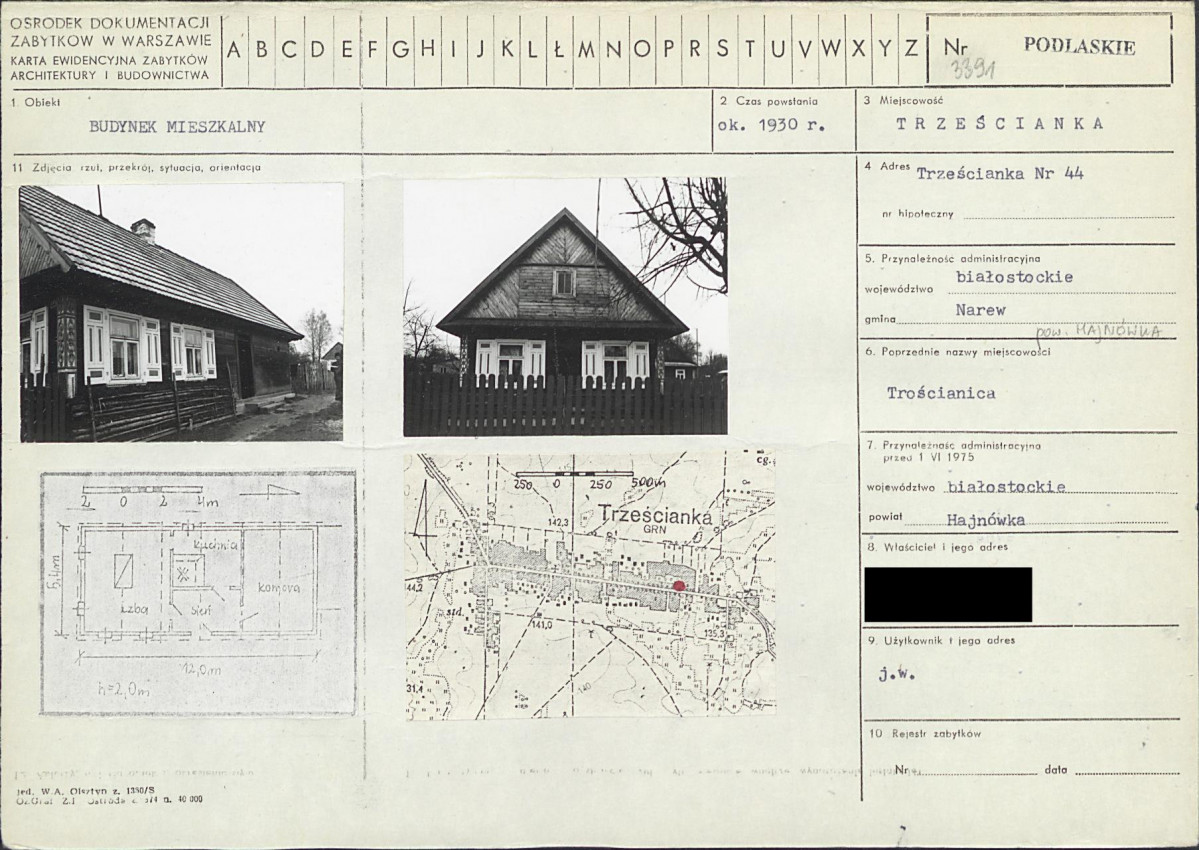 OŚRODEK DOKUMENTACJI
ZABYTKÓW W WARSZAWIE
KARTA EWIDENCYJNA ZABYTKÓW
ARCHITEKTURY I BUDOWNICTWA
A B C D E F G H I J K L Ł M N O P R S T U V W X Y Z
Nr 3391 PODLASKIE
1 Obiekt
BUDYNEK MIESZKALNY
2 Czas powstania
ok. 1930 r.
3 Miejscowość
TRZEŚCIANKA
11 Zdjęcia rzut, przekrój, sytuacja, orientacja
4 Adres Trześcianka Nr 44
nr hipoteczny
5. Przynależność administracyjna
województwo białostockie
gmina Narew
pow. HAJNÓWKA
6. Poprzednie nazwy miejscowości
Trościanica
7. Przynależność administracyjna
przed 1 VI 1975
województwo białostockie
powiat Hajnówka
8. Właściciel i jego adres
9. Użytkownik i jego adres
j.w.
10 Rejestr zabytków
Nr data
2 0 2 4m
kuchnia
izba
sień
komora
5,4m
12,0m
h=2,0m
250 0 250 500m
cg.
142,3
Trześcianka
GRN
44,2
141,0
135,3
31,4
140
Jed. W.A. Olsztyn z. 1350/S